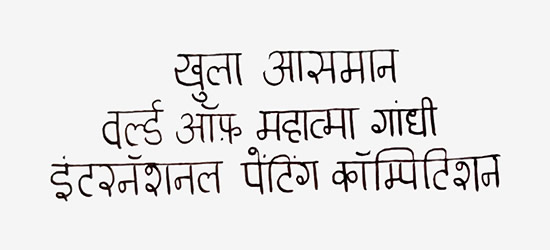 खुला आसमान
वर्ल्ड ऑफ़ महात्मा गांधी
इंटरनॅशनल पेंटिंग कॉम्पिटिशन